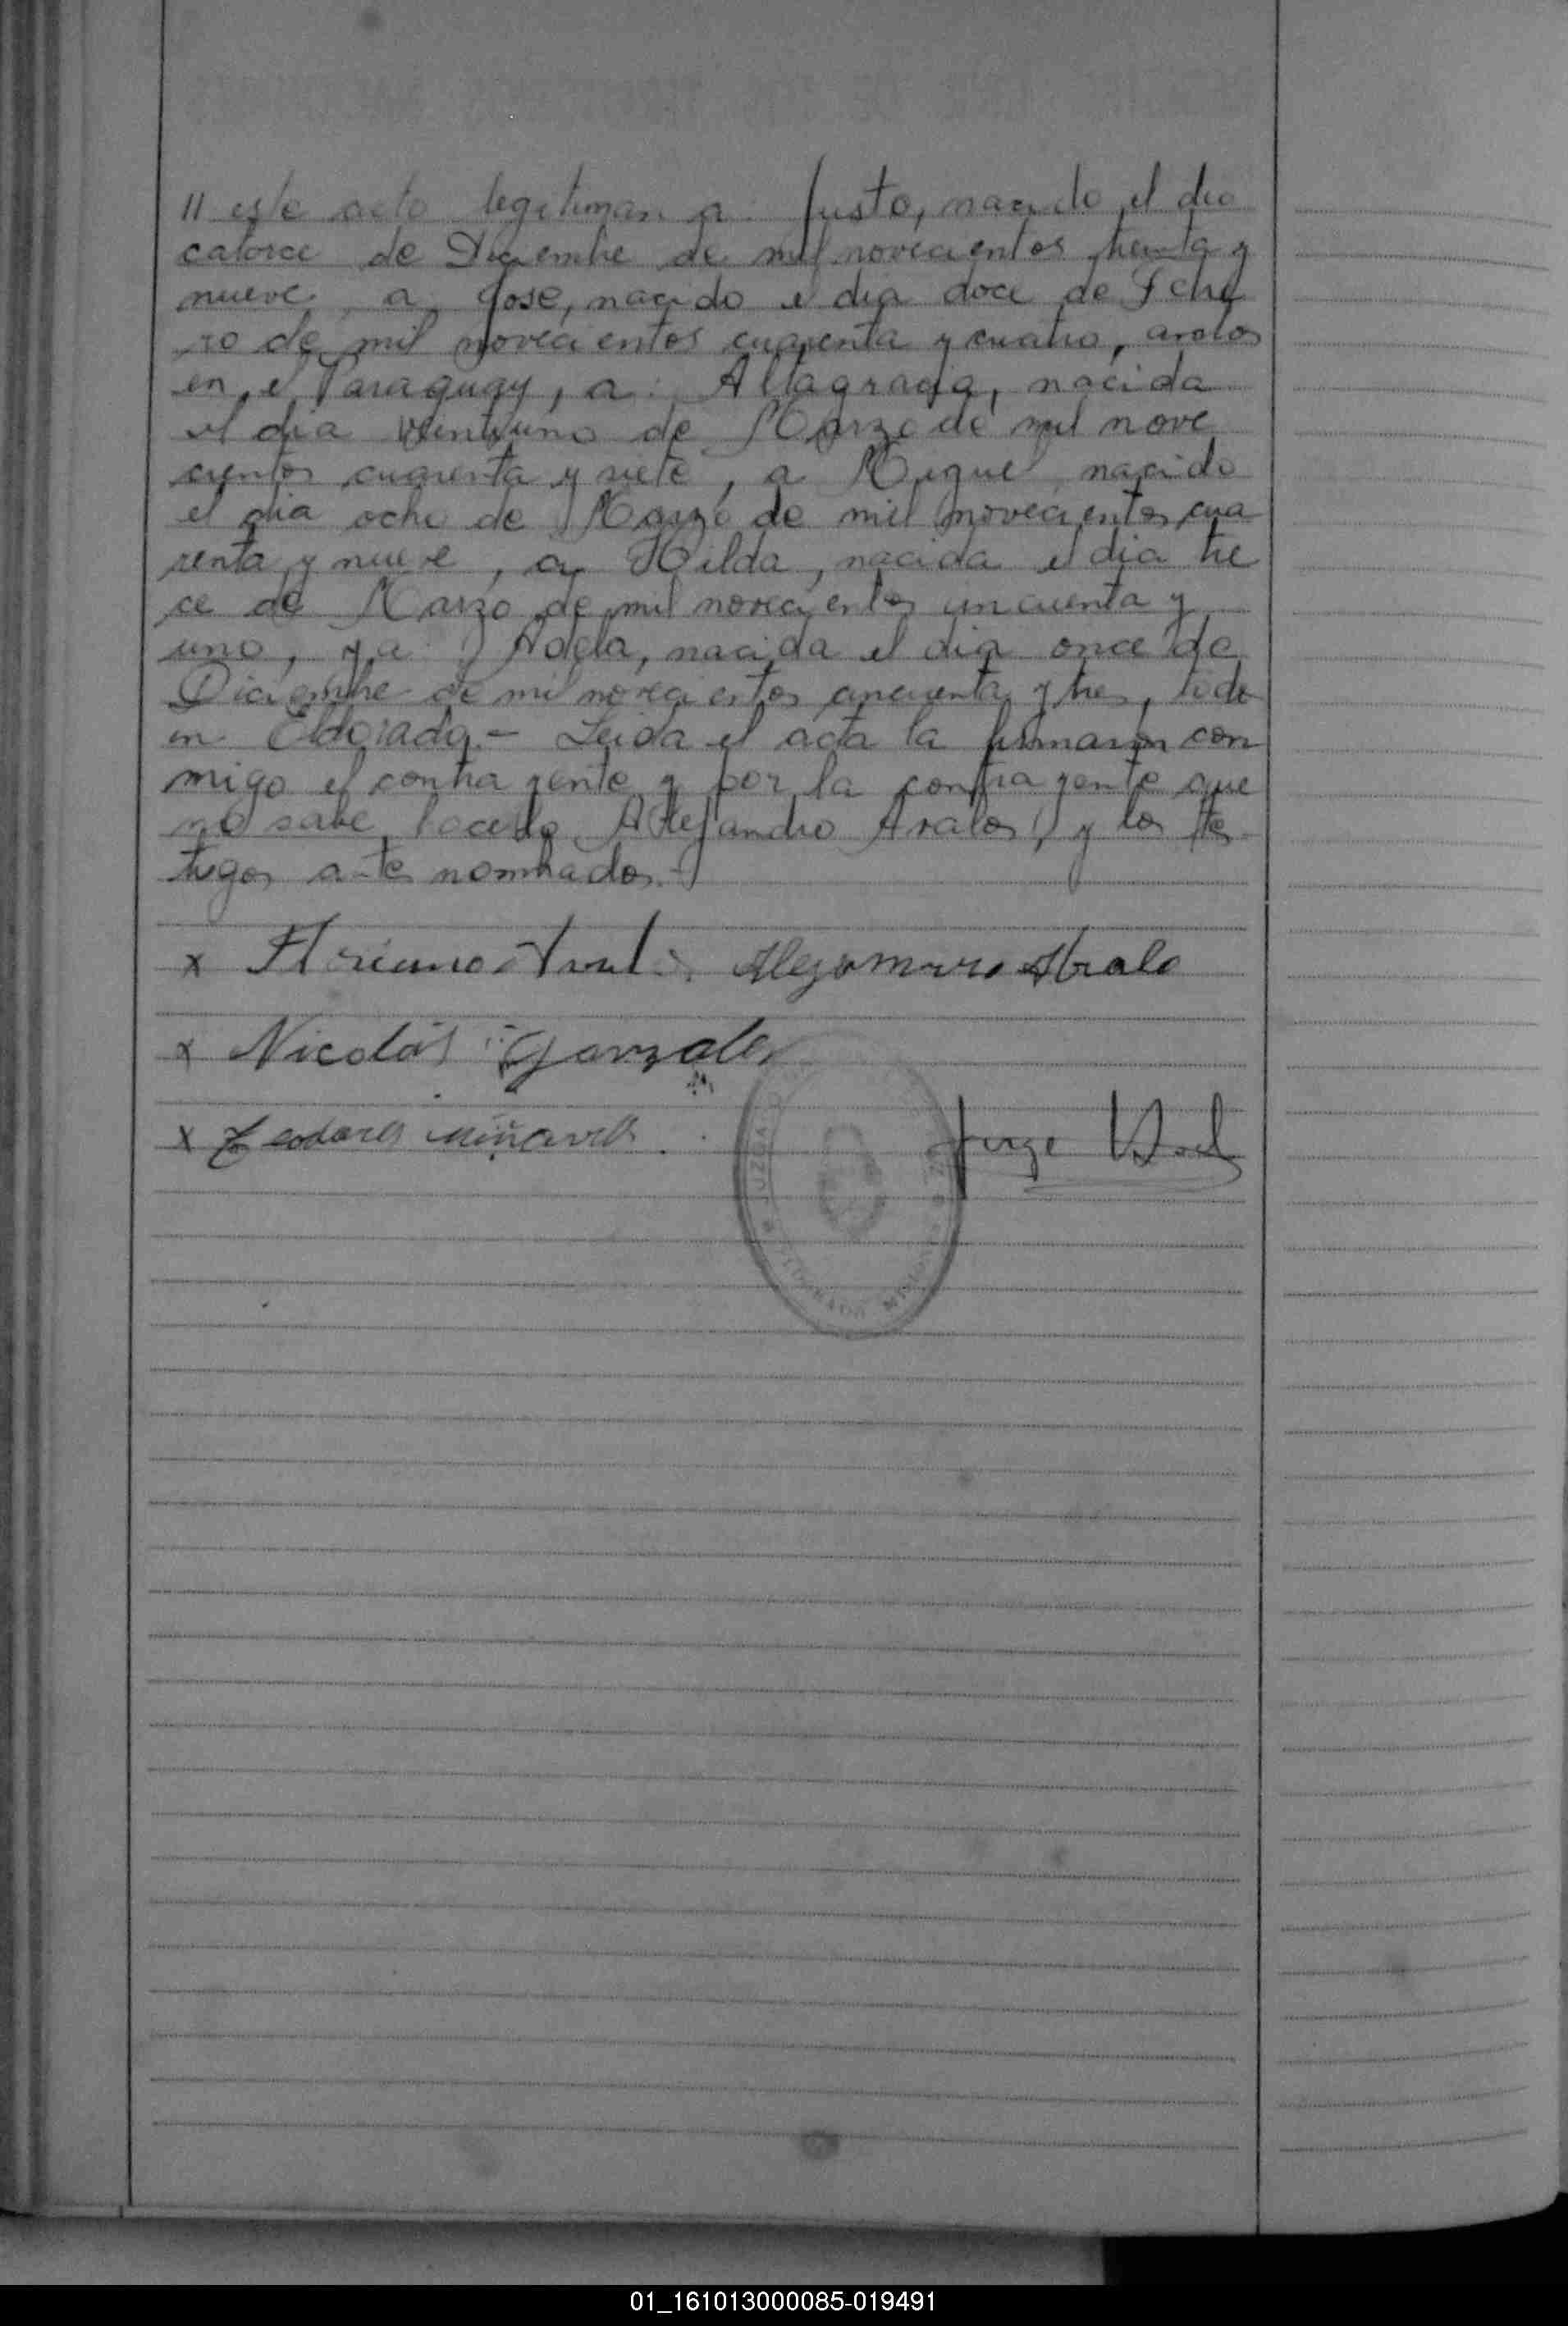 // este acto legitiman a: Justo, nacido el dia
catorce de Diciembre de mil novecientos treinta y
nueve, a José, nacido el dia doce de Febre
ro de mil novecientos cuarenta y cuatro, ambos
en el Paraguay, a: Altagracia, nacida
el dia veintiuno de Marzo de mil nove
cientos cuarenta y siete, a Miguel nacido
el dia ocho de Marzo de mil novecientos cua
renta y nueve, a Hilda, nacida el dia tre
ce de Marzo de mil novecientos cincuenta y
uno, y a: Adela, nacida el dia once de
Diciembre de mil novecientos cincuenta y tres, todo
en Eldorado.- Leida el acta la firmaron con
migo el contrayente y por la contrayente que
no sabe hacerlo Alejandro Avalos, y los tes
tigos antes nombrados.-
x Avalos Alejandro Avalo
x Nicolás Gonzalez
x Teodoro Jorge
JUZGADO DE PAZ
ELDORADO MISIONES
01_161013000085-019491